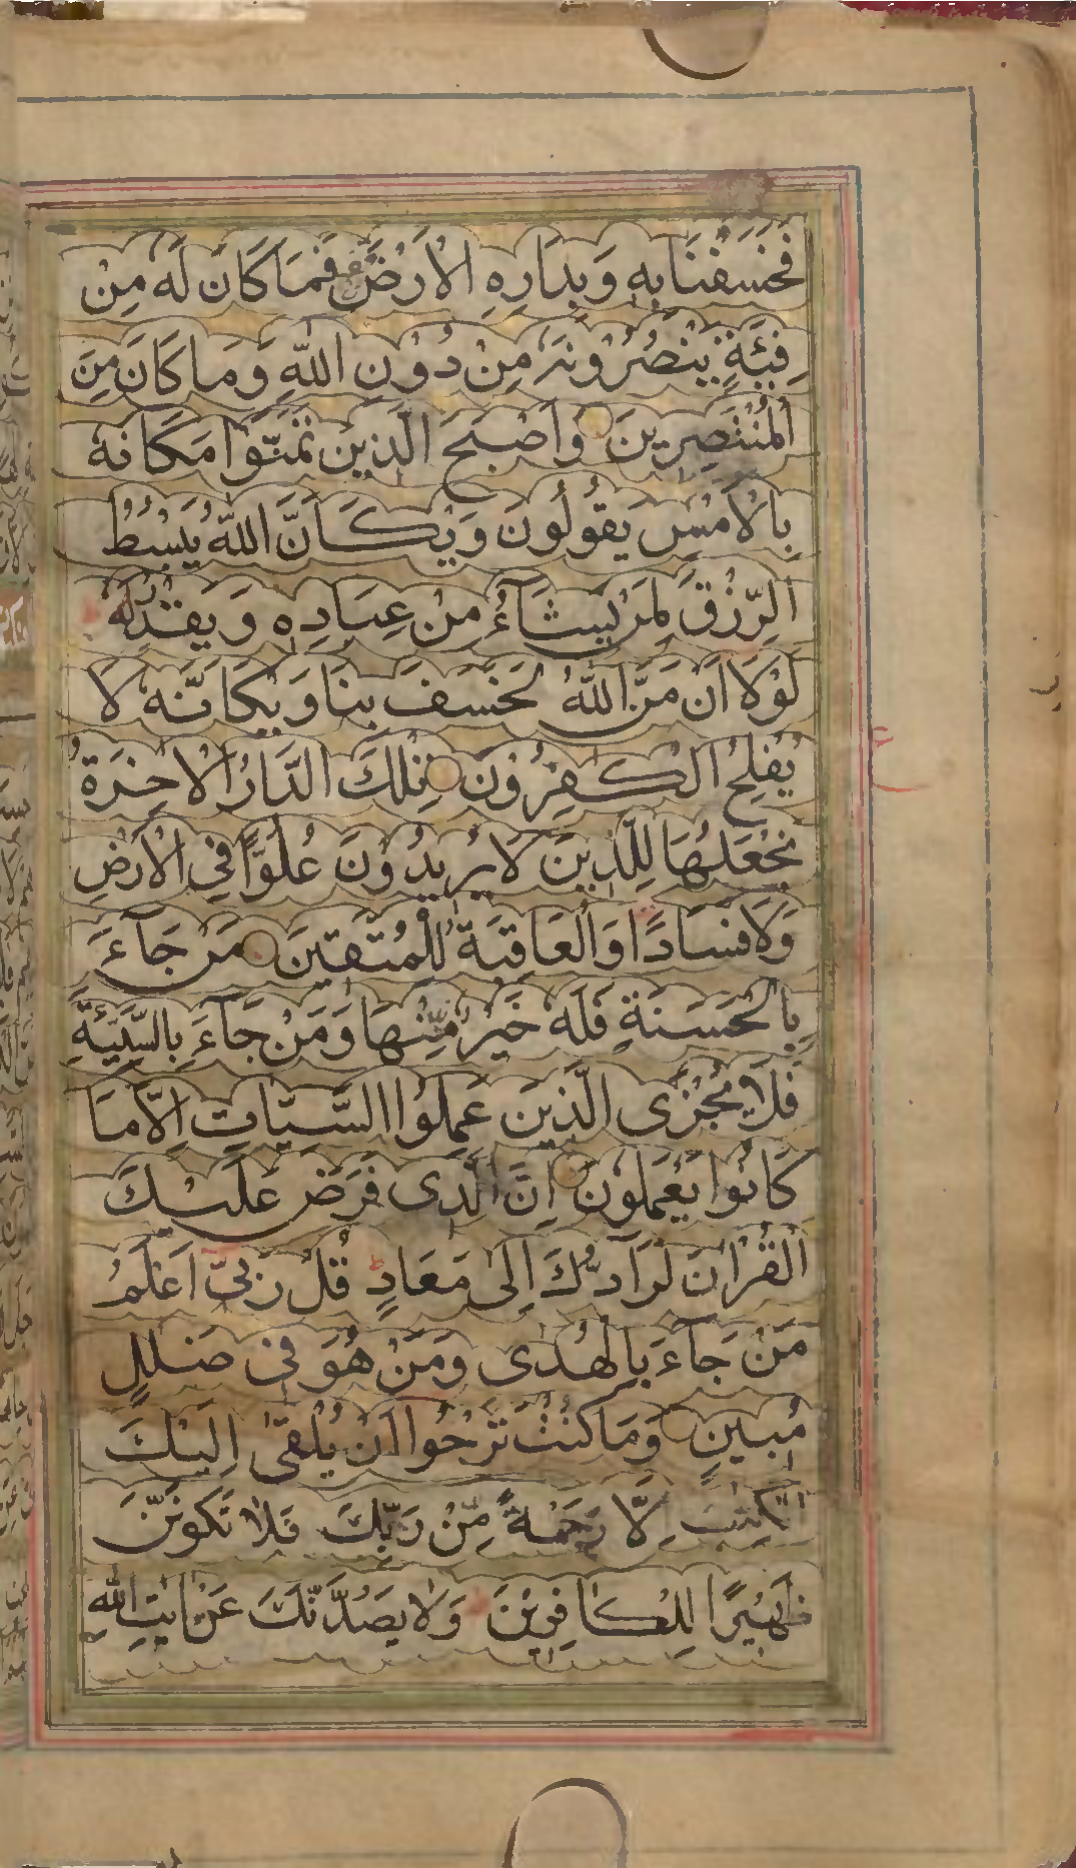 فَخَسَفْنَا بِهِ وَبِدَارِهِ الْاَرْضَ فَمَا كَانَ لَهُ مِنْ
فِئَةٍ يَنْصُرُونَهُ مِنْ دُوْنِ اللّٰهِ وَمَا كَانَ مِنَ
الْمُنْتَصِرِينَ وَاَصْبَحَ الَّذِينَ تَمَنَّوْا مَكَانَهُ
بِالْاَمْسِ يَقُولُونَ وَيْكَاَنَّ اللّٰهَ يَبْسُطُ
الرِّزْقَ لِمَنْ يَشَآءُ مِنْ عِبَادِهِ وَيَقْدِرُ لَهُ
لَوْلَا اَنْ مَنَّ اللّٰهُ لَخَسَفَ بِنَا وَيْكَاَنَّهُ لَا
يُفْلِحُ الْكٰفِرُوْنَ تِلْكَ الدَّارُ الْاٰخِرَةُ
نَجْعَلُهَا لِلَّذِينَ لَا يُرِيدُوْنَ عُلُوًّا فِي الْاَرْضِ
وَلَا فَسَادًا وَالْعَاقِبَةُ لِلْمُتَّقِينَ مَنْ جَآءَ
بِالْحَسَنَةِ فَلَهُ خَيْرٌ مِّنْهَا وَمَنْ جَآءَ بِالسَّيِّئَةِ
فَلَا يُجْزَى الَّذِينَ عَمِلُوا السَّيِّاٰتِ اِلَّا مَا
كَانُوا يَعْمَلُونَ اِنَّ الَّذِى فَرَضَ عَلَيْكَ
الْقُرْاٰنَ لَرَآدُّكَ اِلٰى مَعَادٍ قُلْ رَبِّىْ اَعْلَمُ
مَنْ جَآءَ بِالْهُدٰى وَمَنْ هُوَ فِى ضَلٰلٍ
مُبِينٍ وَمَا كُنْتَ تَرْجُوا اَنْ يُلْقٰى اِلَيْكَ
الْكِتٰبُ اِلَّا رَحْمَةً مِّنْ رَبِّكَ فَلَا تَكُونَنَّ
ظَهِيْرًا لِلْكَافِرِيْنَ وَلَا يَصُدُّنَّكَ عَنْ اٰيٰتِ اللّٰهِ